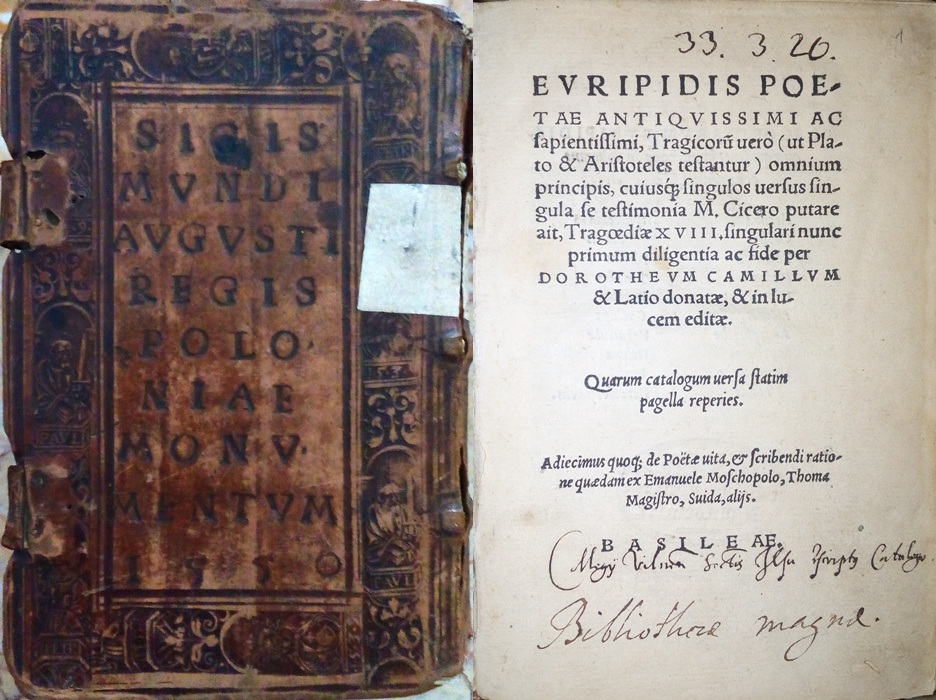 SIGIS
MVNDI
AVGVSTI
REGIS
POLO
NIAE
MONV
MENTVM
1550
PAVL
33. 3. 26.
1
EVRIPIDIS POE-
TAE ANTIQVISSIMI AC
sapientissimi, Tragicorũ uerò (ut Pla-
to & Aristoteles testantur) omnium
principis, cuiusq́ꝫ singulos uersus sin-
gula se testimonia M. Cicero putare
ait, Tragœdiæ XVIII. singulari nunc
primum diligentia ac fide per
DOROTHEVM CAMILLVM
& Latio donatæ, & in lu-
cem editæ.
Quarum catalogum uersa statim
pagella reperies.
Adiecimus quoqꝫ de Poëtæ uita, & scribendi ratio-
ne quædam ex Emanuele Moschopolo, Thoma
Magistro, Suida, alijs.
BASILEAE.
Catalogo
Bibliothecæ magnæ.